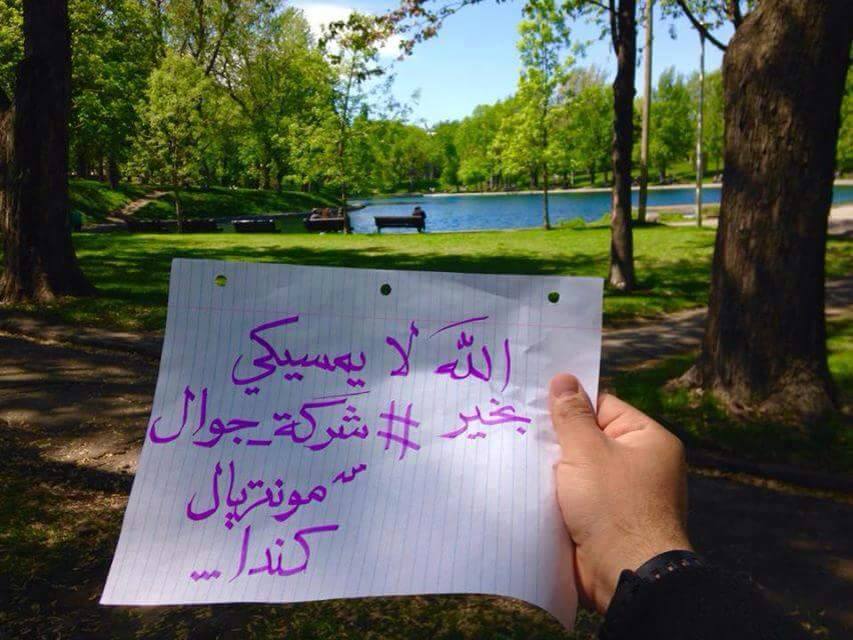 الله لا يمسيكي
بخير #شركة_جوال
مونتريال
كندا...